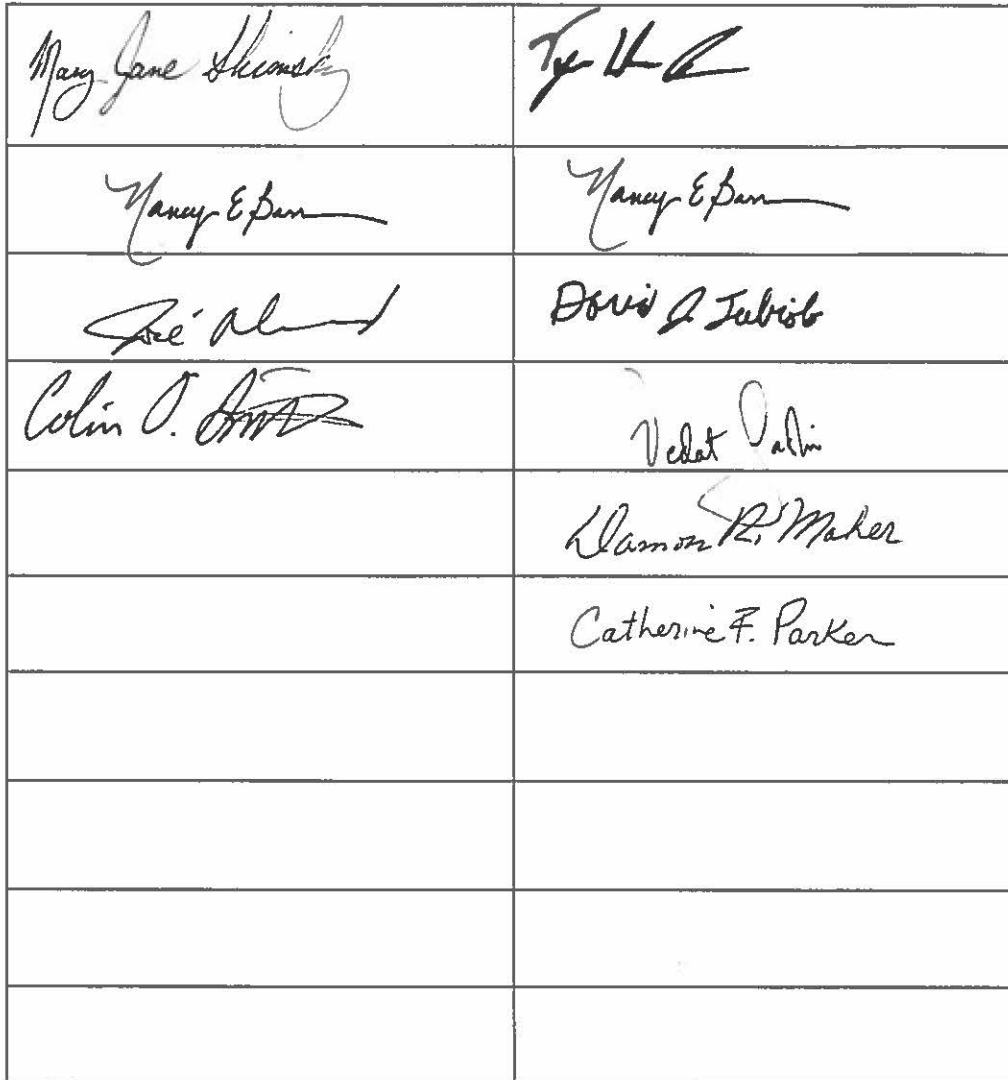 Mary Jane Shimsky
Nancy E Barr
Nancy E Barr
José
David J. Tubiolo
Colin O. Smith
Vedat
Damon R. Maher
Catherine F. Parker